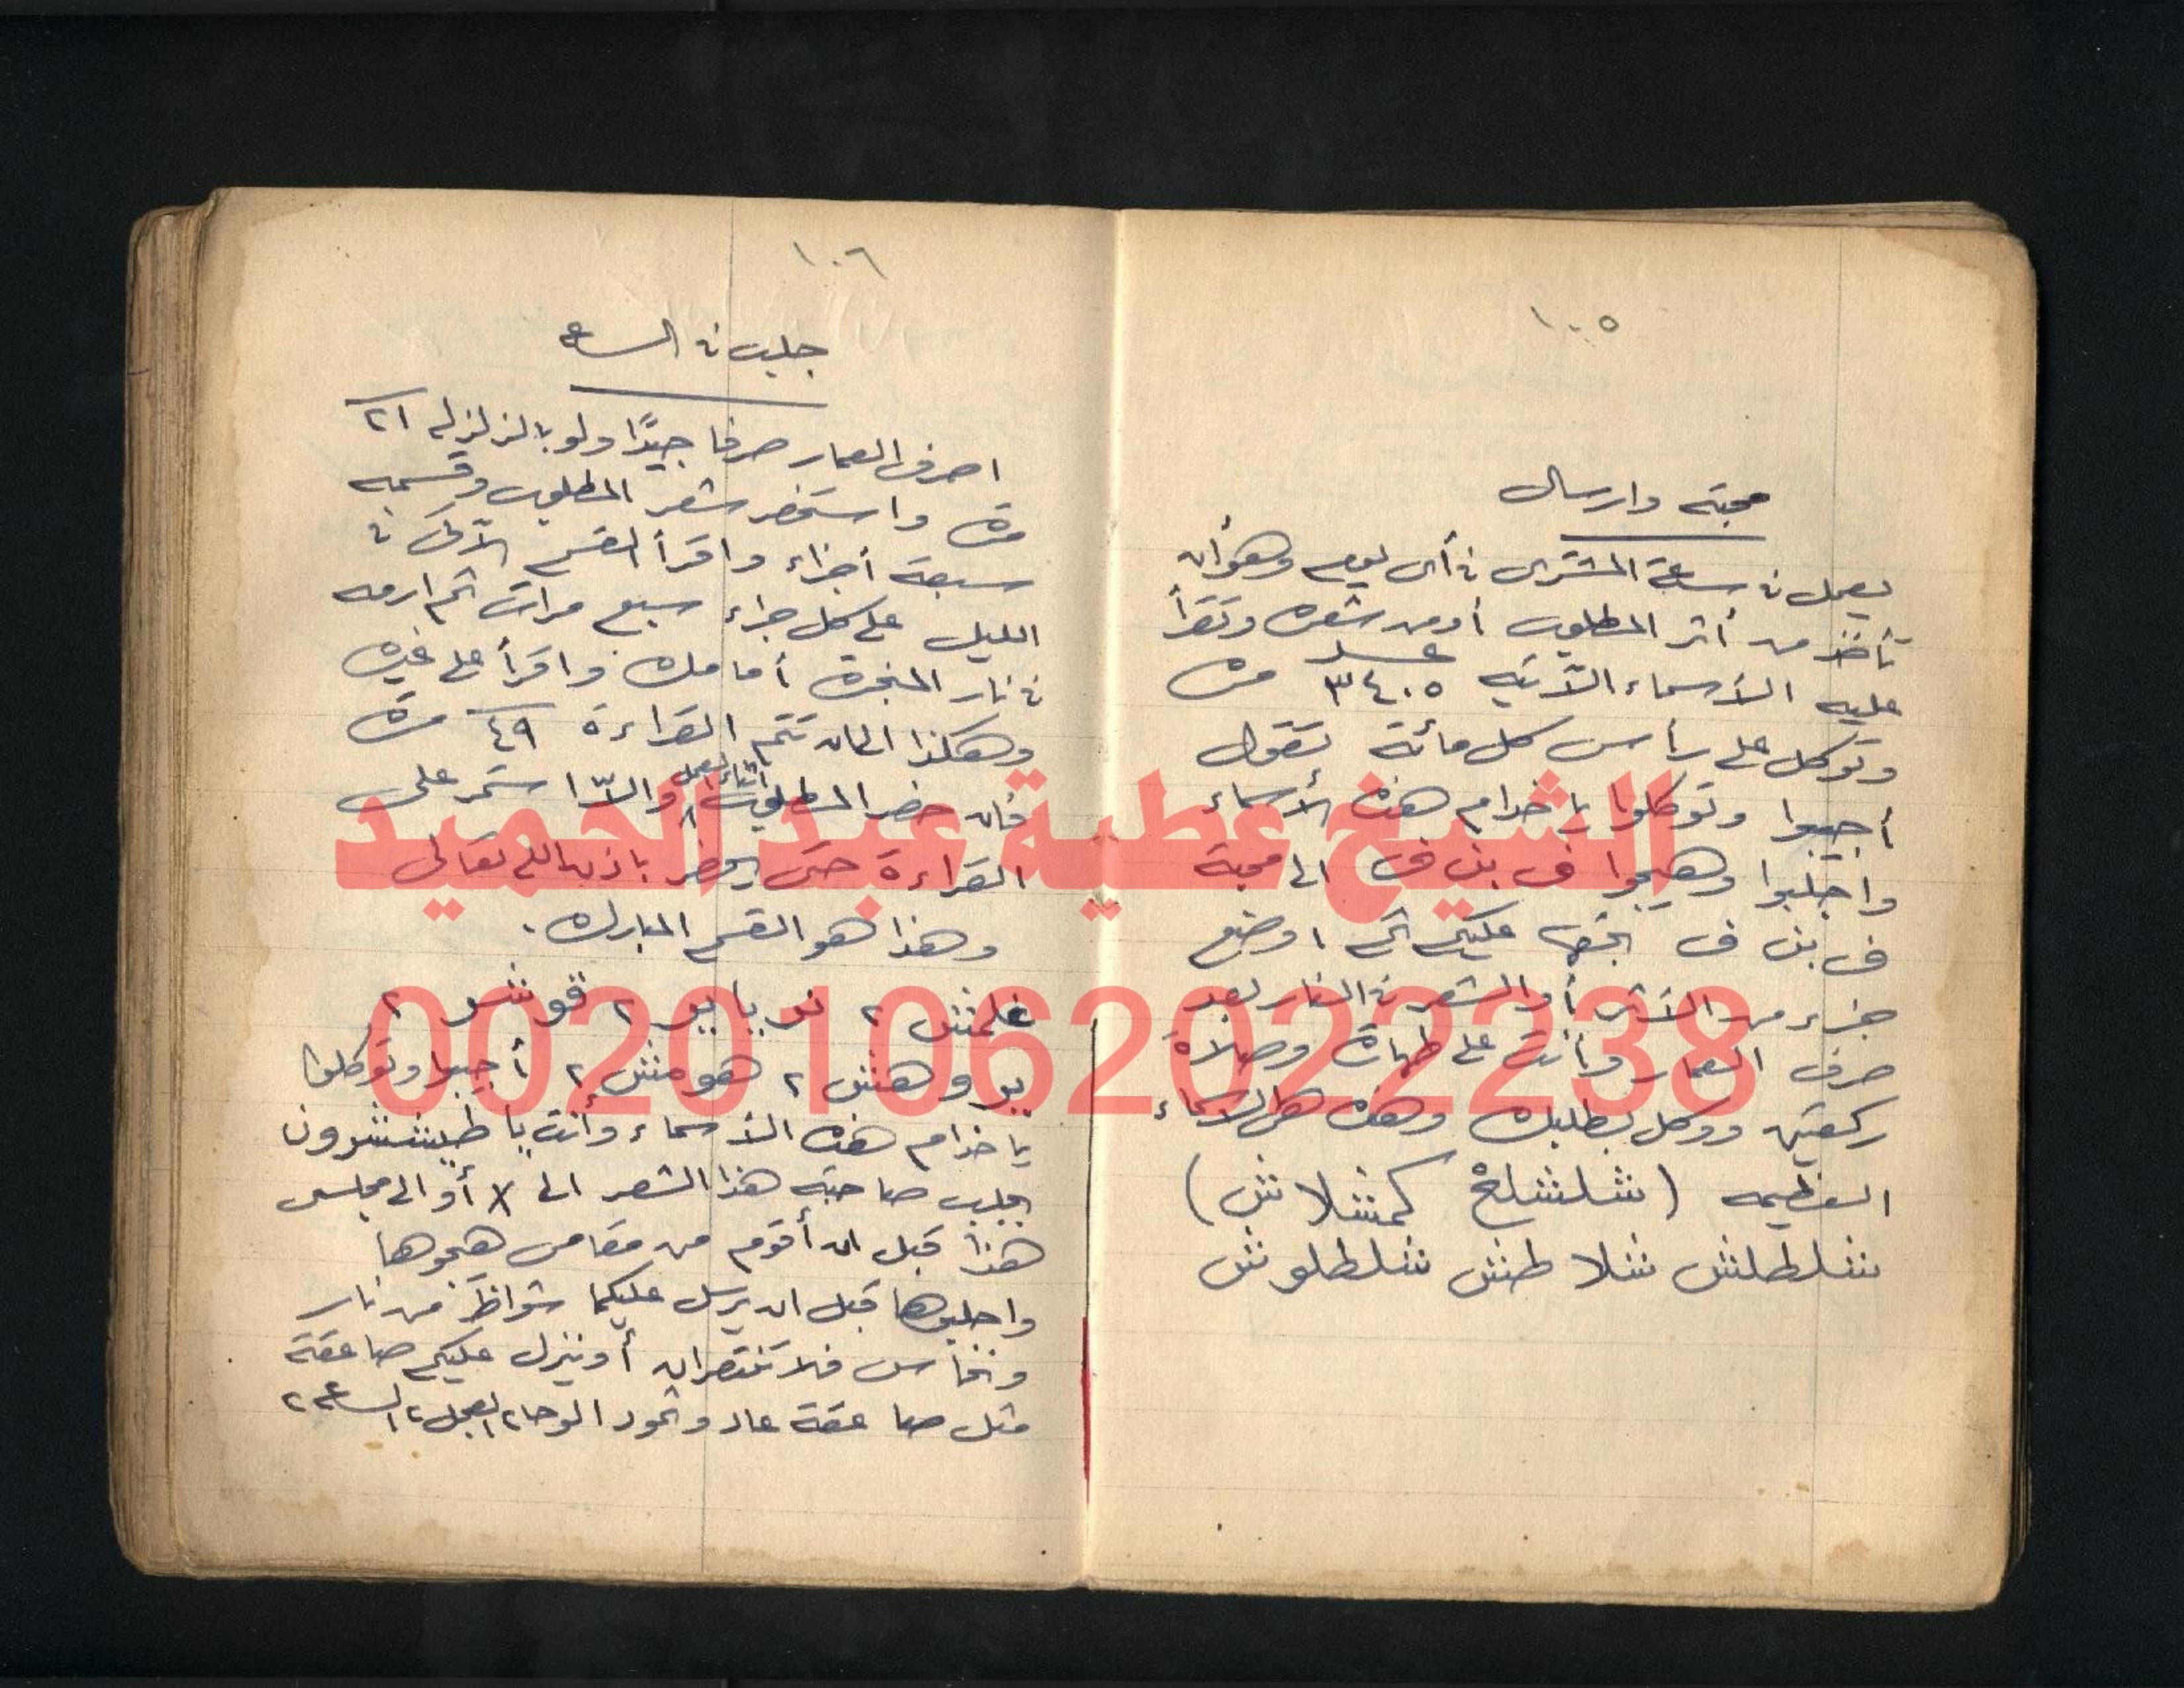 ١٠٥
محبة وارسال
يعمل فى ساعة المشترى فى أى يوم وهو أن
تأخذ من أثر المطلوب أو من شعره وتقرأ
عليه الأسماء الآتيه عدد ٣٤٠٥ مرة
وتوكل على رأس كل مائة تقول
أجيبوا وتوكلوا يا خدام هذه الأسماء
واجلبوا وهيجوا ف بن ف الى محبة
ف بن ف بحقها عليكم ثم ا وضع
جزء من الأثر أو الشعر فى النار بعد
صرف العمار وأنت على طهارة وصلاة
ركعتين ووكل بطلبك وهذه هى الاسماء
العظيمه (شلشلخ كمشلاش)
شلطلش شلاطش شلطلوش
١٠٦
جلب فى الساعه
اصرف العمار صرفا جيدًا ولو بالزلزله ٢١
مرة واستحضر شعر المطلوب وقسمه
سبعة أجزاء واقرأ القسم الآتى فى
الليل على كل جزء سبع مرات ثم ارمه
فى نار المبخرة أمامك واقرأ على غيره
وهكذا الى ان تتم القراءة ٤٩ مرة
فان حضر المطلوب أثناء العمل والّا استمر على
القراءة حتى يحضر باذن الله تعالى
وهذا هو القسم المبارك.
غلمش ٢ نويايو ٢ قونشو ٢
يووهش ٢ هومش ٢ أجيبوا وتوكلوا
يا خدام هذه الأسماء وأنت يا طيششرون
بجلب صاحبة هذا الشعر الى X أو الى مجلسى
هذا قبل ان أقوم من مقامى هيجوها
واجلبوها قبل ان يرسل عليكما شواظ من نار
ونحاس فلا تنتصران أو ينزل عليكم صاعقة
مثل صاعقة عاد وثمود الوحا ٢ العجل ٢ الساعه ٢
الشيخ عطية عبد الحميد
00201062022238